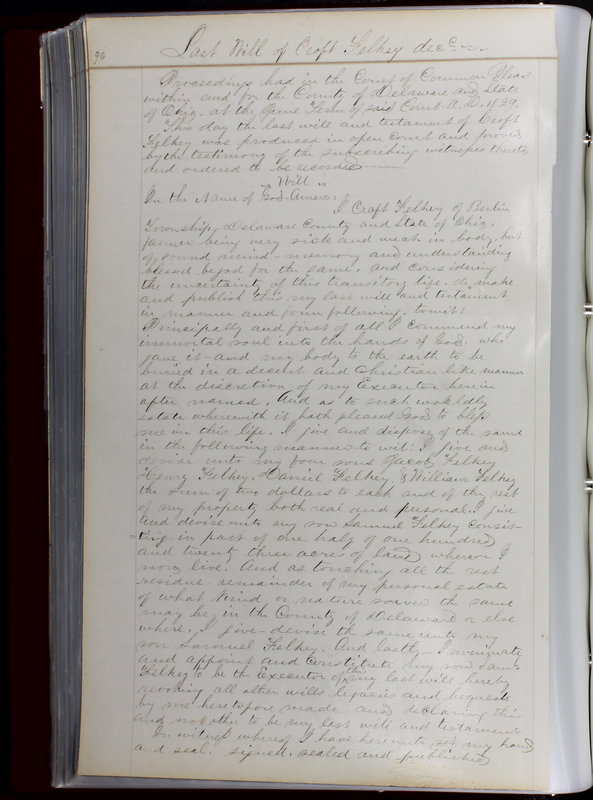 96
Last Will of Croft Felkey decd.
Proceedings had in the Court of Common Pleas
within and for the County of Delaware and State
of Ohio. at the June Term of said Court A.D. 1839.
This day the last will and testament of Croft
Felkey was produced in open court and proved
by the testimony of the subscribing witnesses thereto
and ordered to be recorded
" Will "
In the Name of God-Amen: I Craft Felkey of Berlin
Township, Delaware County and State of Ohio,
farmer being very sick and weak in body, but
of sound mind - memory and understanding
blessed be god for the same. and considering
the uncertainty of this transitory life. do make
and publish this my last will and testament
in manner and form following. towit:
Principally and first of all I commend my
immortal soul into the hands of God. who
gave it - and my body to the earth to be
buried in a decent and Christian like manner
at the discretion of my Executor herein
after named. And as to such worldly
estate wherewith it hath pleased God to bless
me in this life. I give and dispose of the same
in the following manner to wit: I give and
devise unto my four sons Jacob Felkey
Henry Felkey, Daniel Felkey, & William Felkey
the sum of two dollars to each and of the rest
of my property both real and personal. I give
and devise unto my son Samuel Felkey consis-
=ting in part of one half of one hundred
and twenty three acres of land whereon I
now live. And as touching all the rest
residue - remainder of my personal estate
of what kind or nature soever the same
may be in the County of Delaware or else
where. I give - devise the same unto my
son Samuel Felkey. And lastly - I nominate
and appoint and constitute my son Saml
Felkey to be the Executor of this my last will hereby
revoking all other wills legacies and bequests
by me heretofore made and declaring this
and no other to be my last will and testament
In witness whereof I have hereunto set my hand
and seal. signed, sealed and published